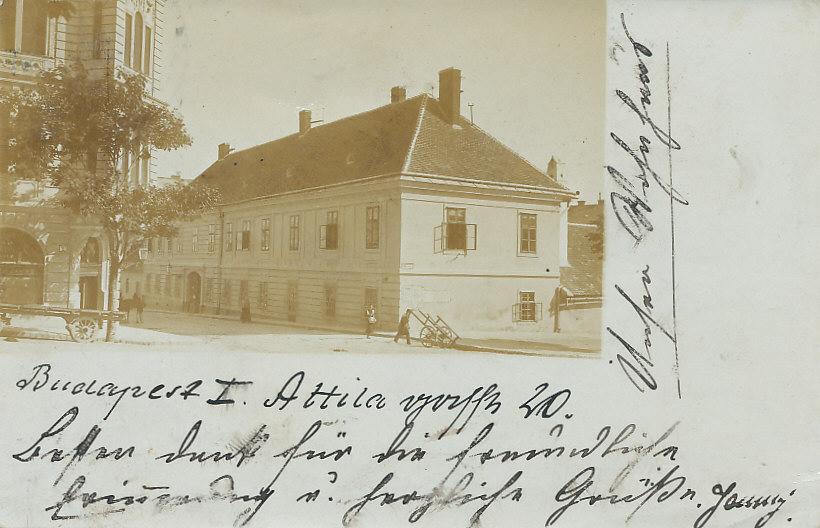 Unser Wohnhaus
Budapest I. Attila gasse 20.
Besten dank für die freundliche
Erinnerung u. herzliche Grüße.